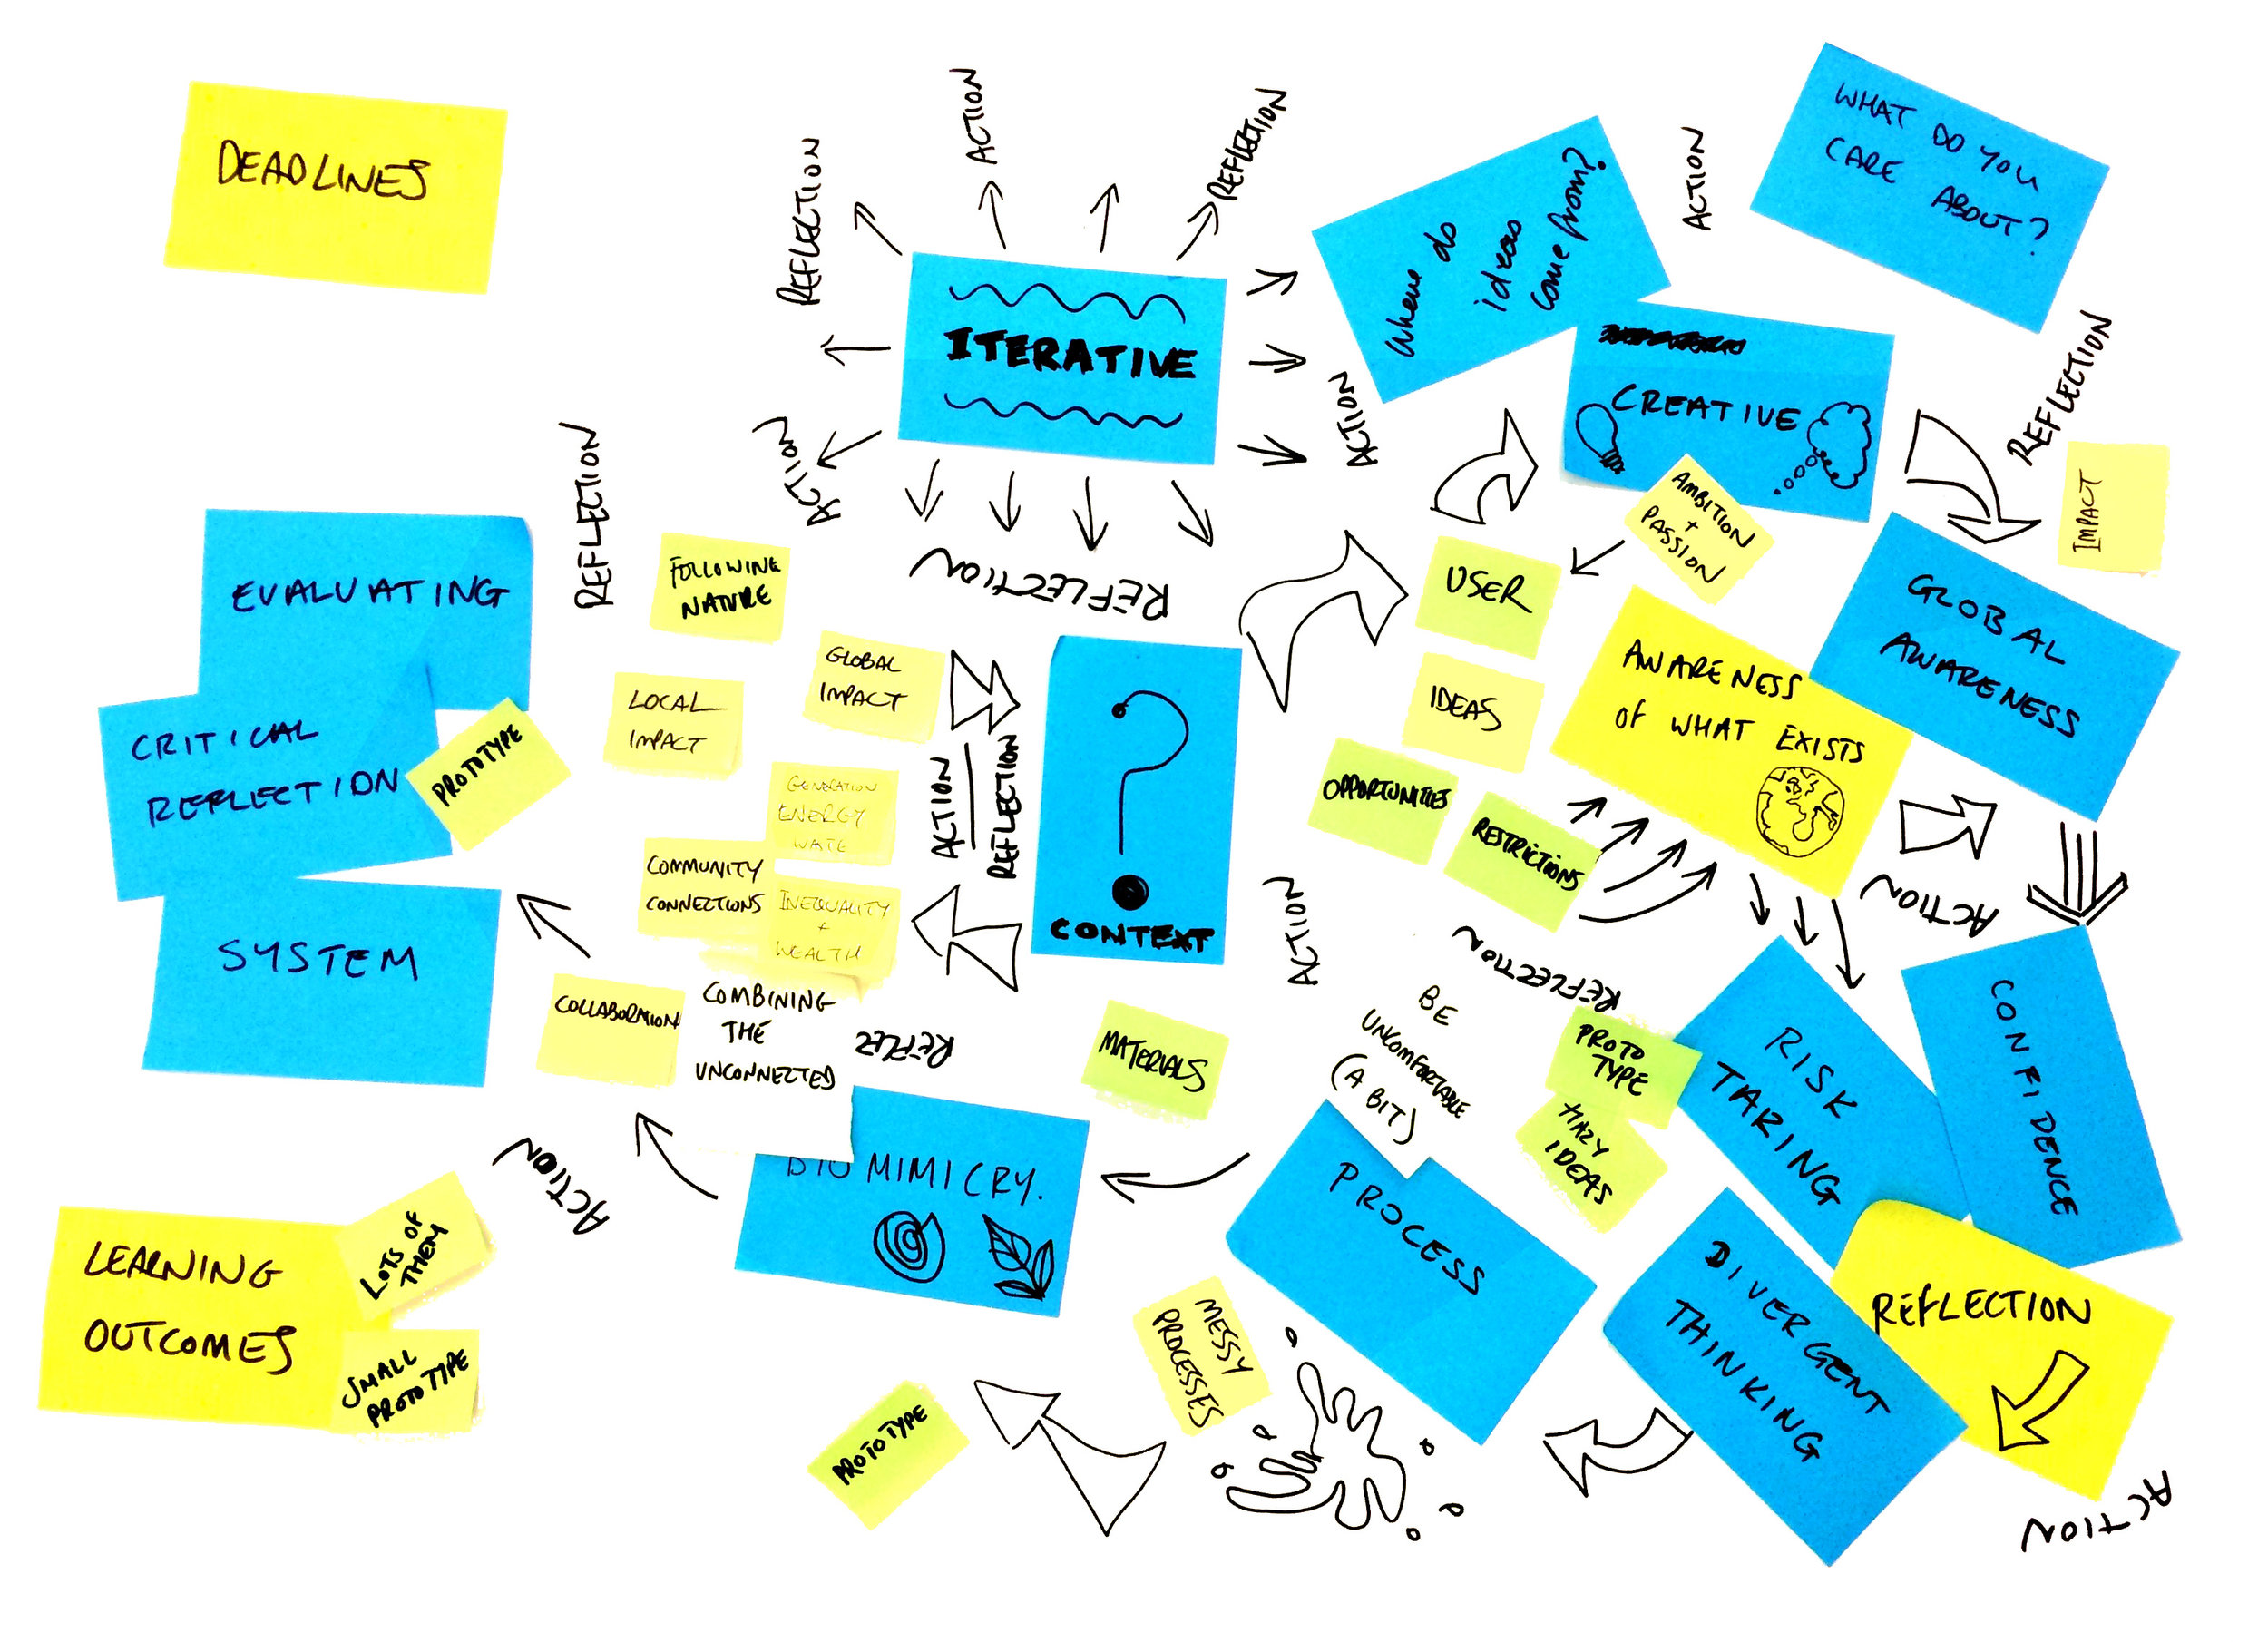 DEADLINES
REFLECTION
ACTION
REFLECTION
ITERATIVE
ACTION
REFLECTION
ACTION
Where do
ideas
come from?
ACTION
WHAT DO YOU
CARE ABOUT?
CREATIVE
REFLECTION
IMPACT
AMBITION
+
PASSION
USER
IDEAS
OPPORTUNITIES
RESTRICTIONS
AWARENESS
of WHAT EXISTS
GLOBAL
AWARENESS
ACTION
REFLECTION
EVALUATING
CRITICAL
REFLECTION
PROTOTYPE
SYSTEM
FOLLOWING
NATURE
GLOBAL
IMPACT
LOCAL
IMPACT
GENERATION
ENERGY
WATE
COMMUNITY
CONNECTIONS
INEQUALITY
+
WEALTH
COLLABORATION
COMBINING
THE
UNCONNECTED
ACTION
REFLECTION
CONTEXT
REFLEC
MATERIALS
ACTION
REFLECTION
BE
UNCOMFORTABLE
(A BIT)
PROTO
TYPE
HAZY
IDEAS
RISK
TAKING
CONFIDENCE
REFLECTION
DIVERGENT
THINKING
ACTION
PROCESS
MESSY
PROCESSES
PROTOTYPE
BIOMIMICRY.
ACTION
LEARNING
OUTCOMES
LOTS OF
THEM
SMALL
PROTOTYPE